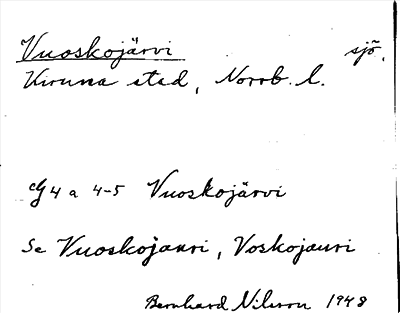 Vuoskojärvi sjö,
Kiruna stad, Norrb. l.
cG 4 a 4-5 Vuoskojärvi
Se Vuoskojauri, Voskojauri
Bernhard Nilsson 1948